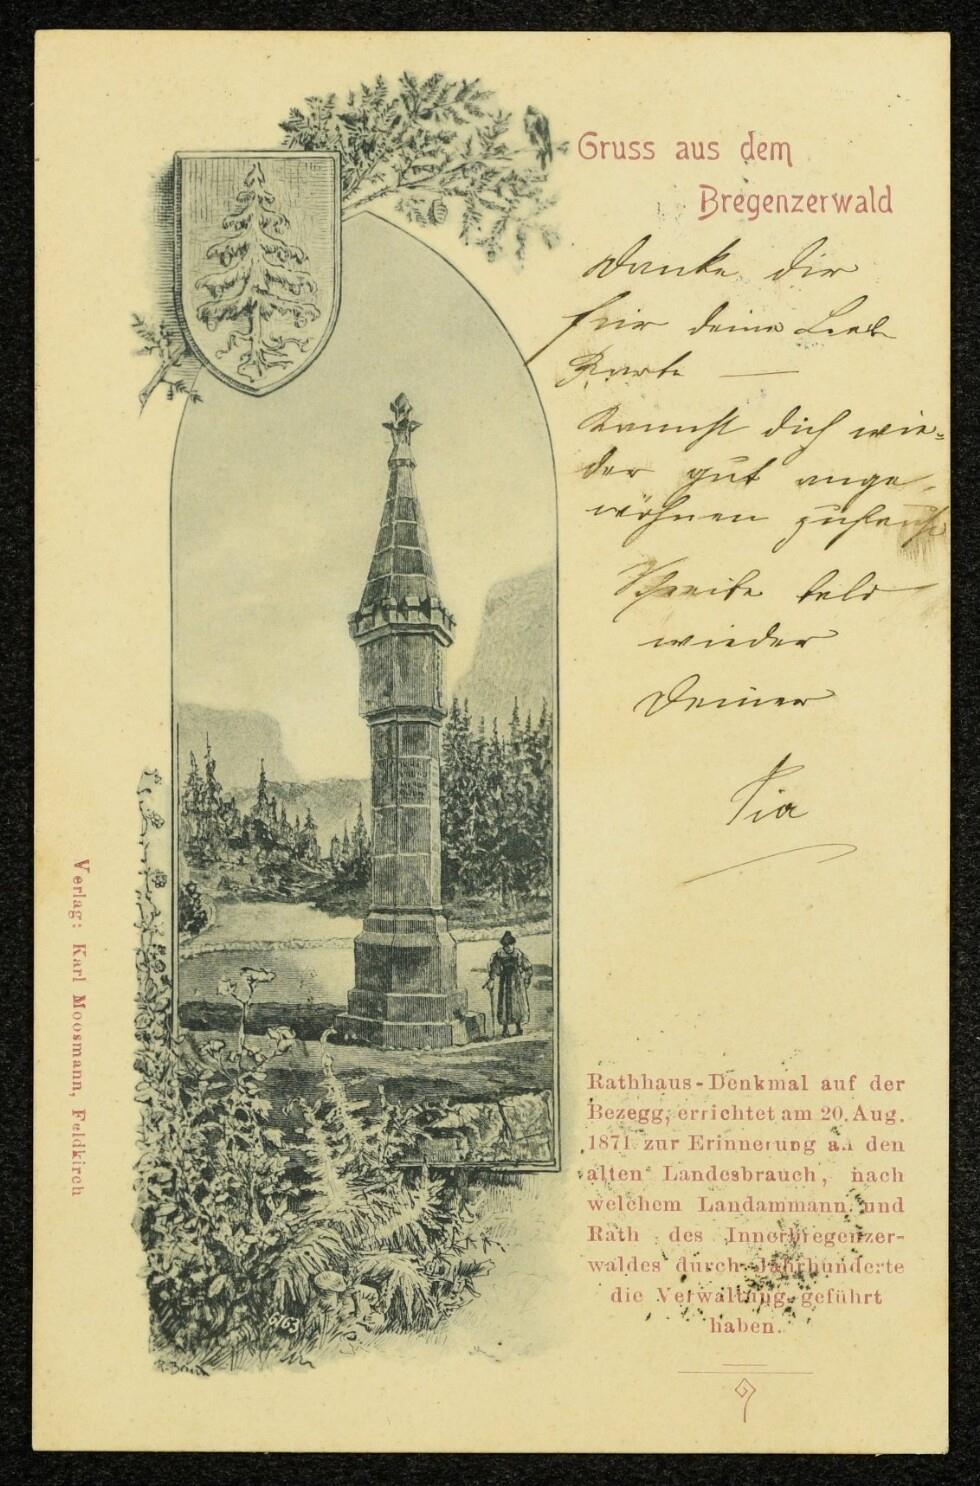 Gruss aus dem
Bregenzerwald
Danke dir
für deine Lieb
Karte —
Kannst dich wie-
der gut ange-
wöhnen zuhause
Schreibe bald
wieder
Deiner
Pia
Rathhaus-Denkmal auf der
Bezegg, errichtet am 20. Aug.
1871 zur Erinnerung an den
alten Landesbrauch, nach
welchem Landammann und
Rath des Innerbregenzer-
waldes durch Jahrhunderte
die Verwaltung geführt
haben.
Verlag: Karl Moosmann, Feldkirch
6163